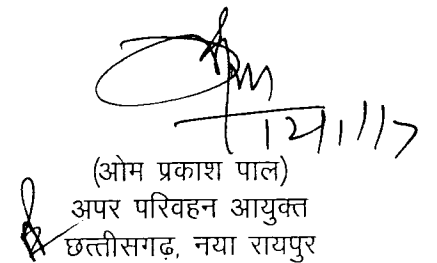 (ओम प्रकाश पाल)
अपर परिवहन आयुक्त
छत्तीसगढ़, नया रायपुर